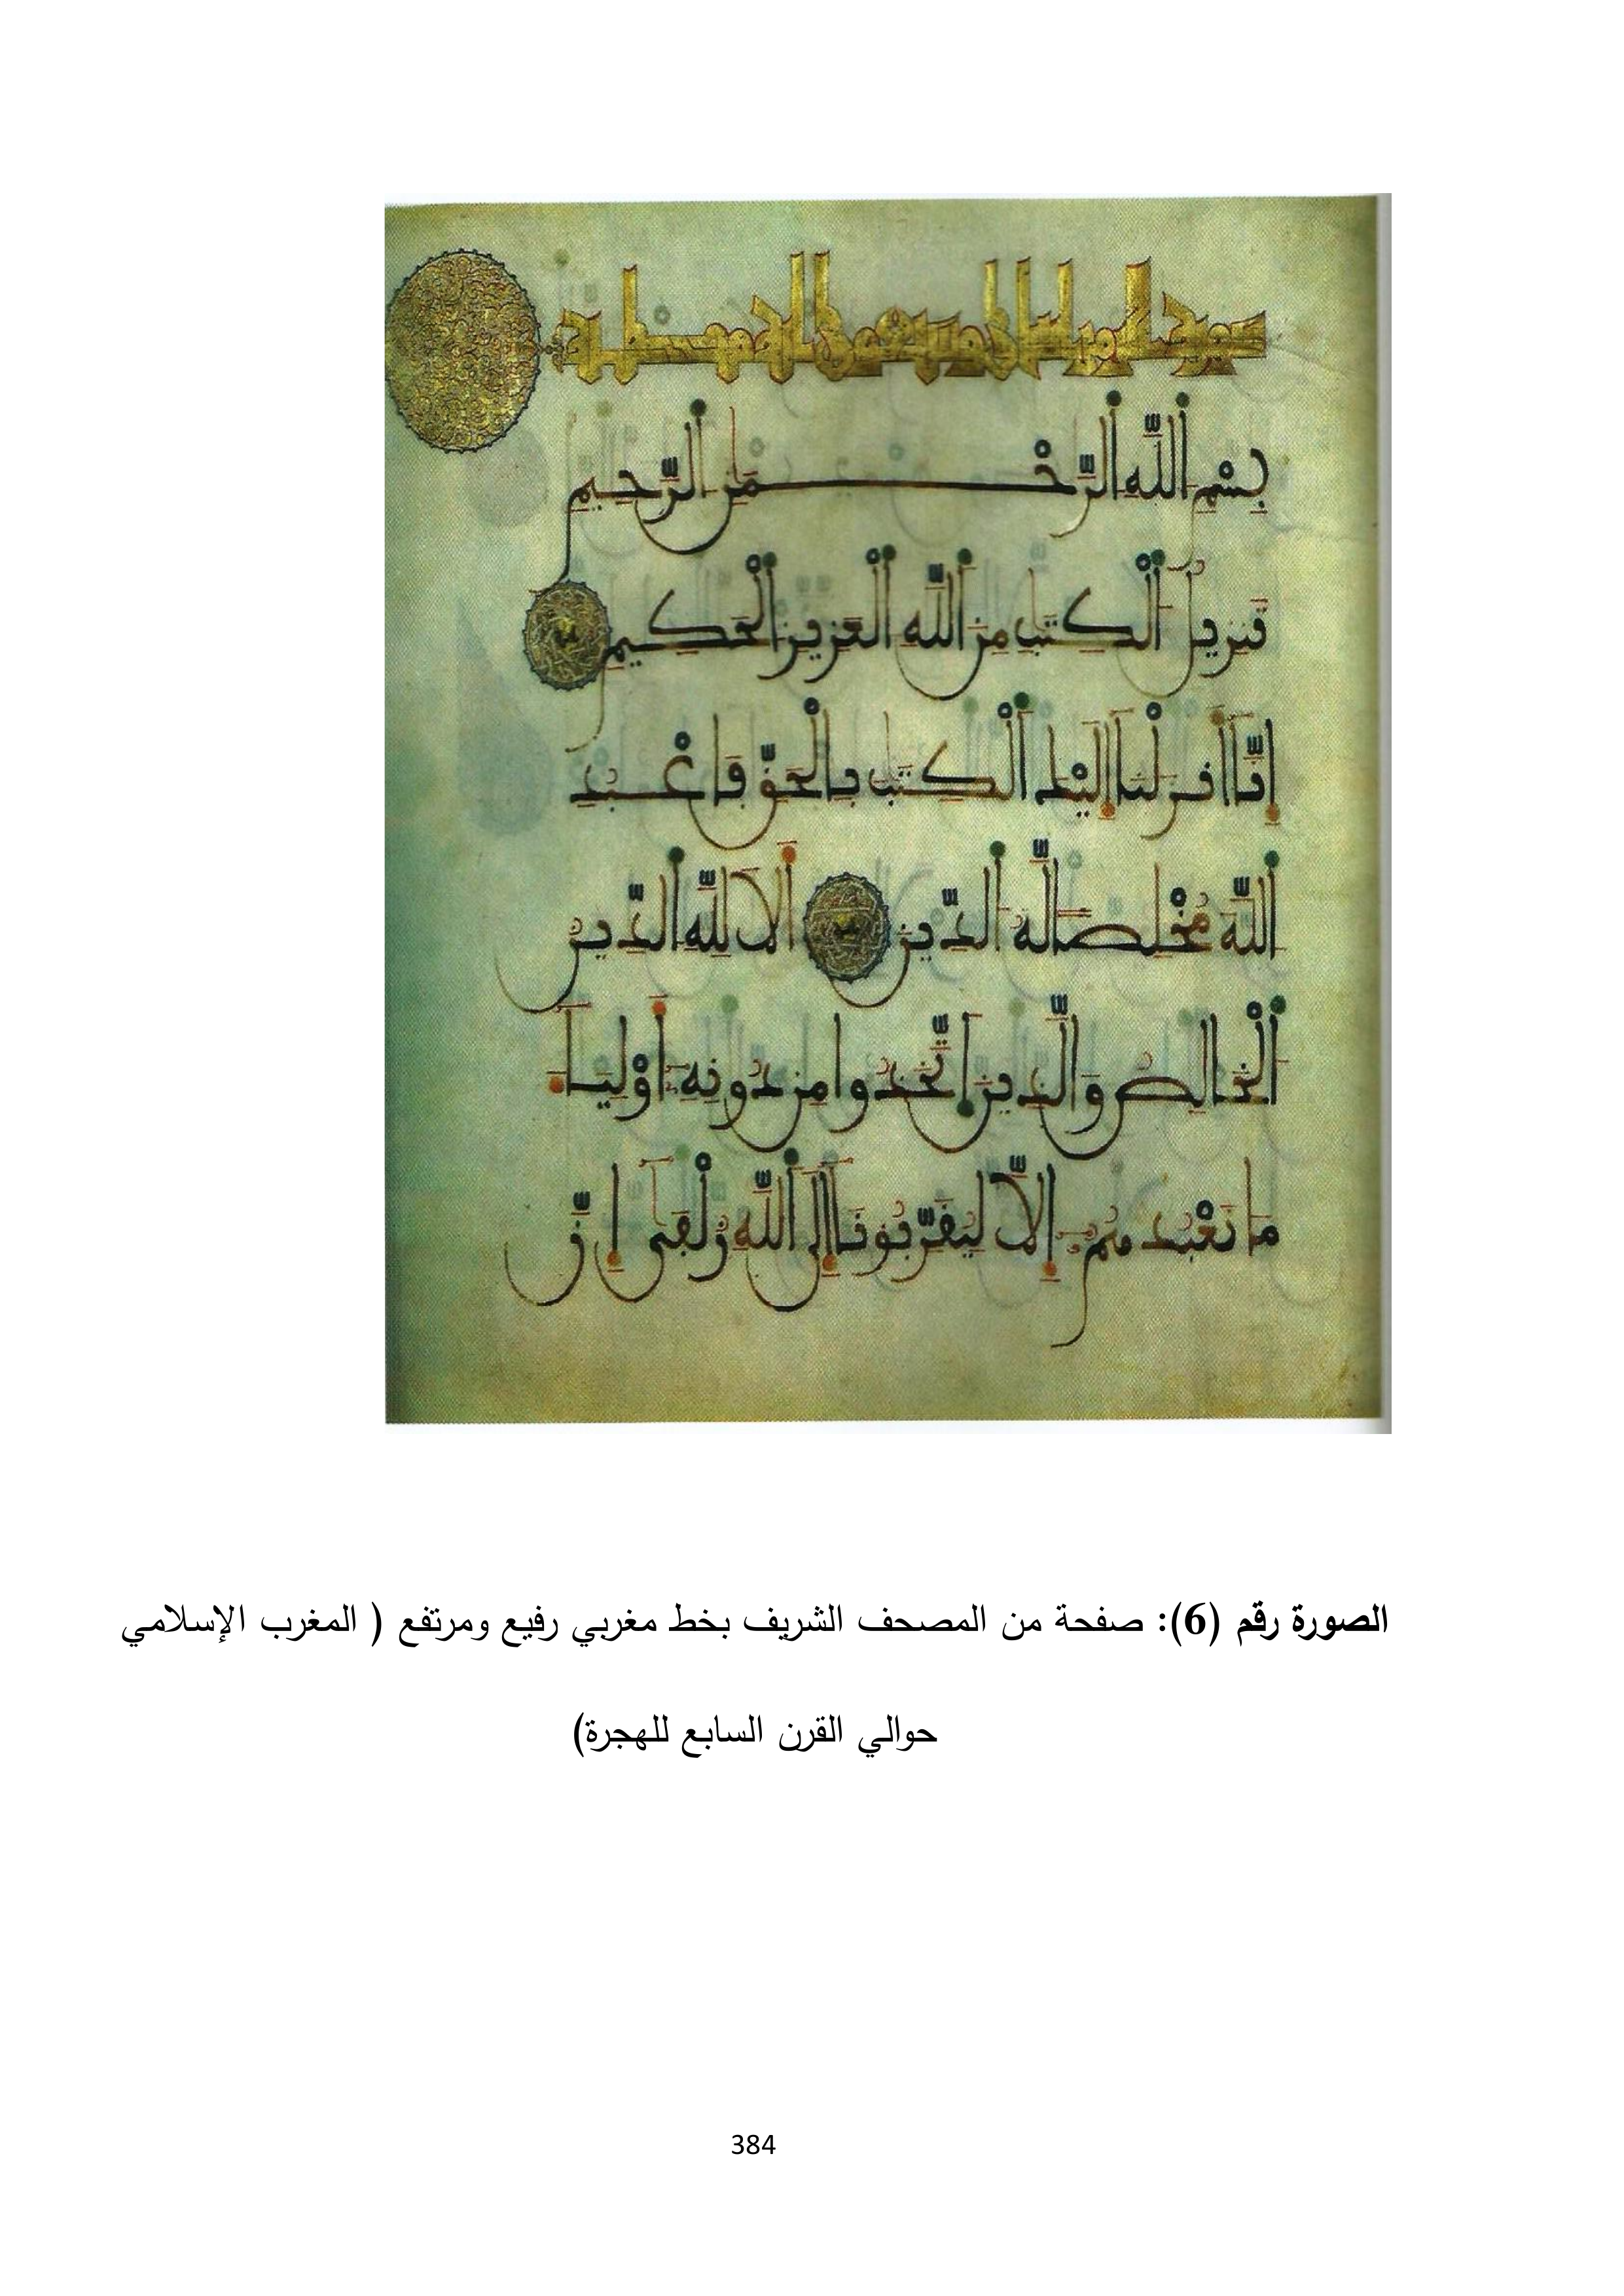 بِسْمِ اللَّهِ الرَّحْمَٰنِ الرَّحِيمِ
تَنزِيلُ الْكِتَٰبِ مِنَ اللَّهِ الْعَزِيزِ الْحَكِيمِ
إِنَّا أَنزَلْنَا إِلَيْكَ الْكِتَٰبَ بِالْحَقِّ فَاعْبُدِ
اللَّهَ مُخْلِصًا لَّهُ الدِّينَ أَلَا لِلَّهِ الدِّينُ
الْخَالِصُ وَالَّذِينَ اتَّخَذُوا مِن دُونِهِ أَوْلِيَاءَ
مَا نَعْبُدُهُمْ إِلَّا لِيُقَرِّبُونَا إِلَى اللَّهِ زُلْفَىٰ إِنَّ
الصورة رقم (6): صفحة من المصحف الشريف بخط مغربي رفيع ومرتفع ( المغرب الإسلامي
حوالي القرن السابع للهجرة)
384